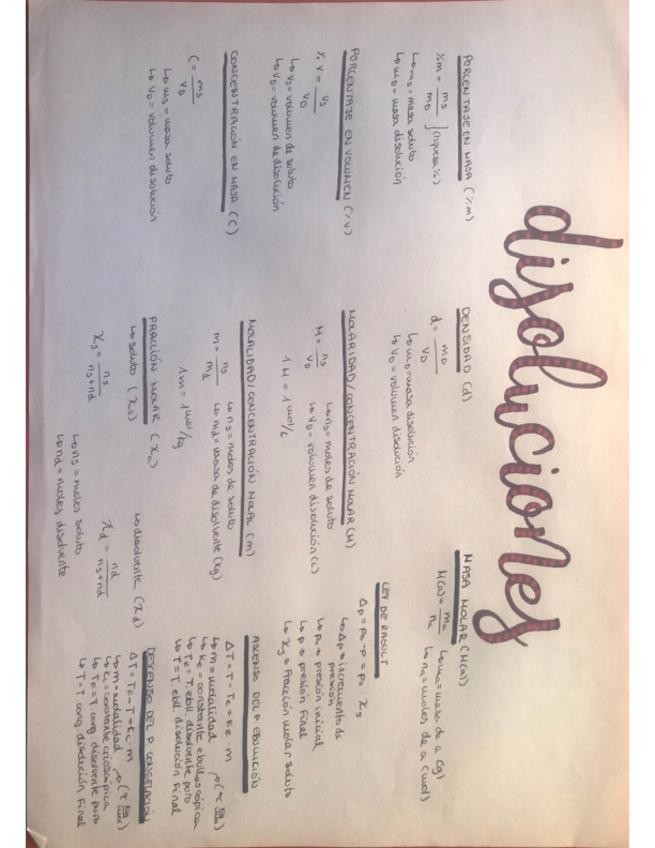 disoluciones
PORCENTAJE EN MASA (%m)
%m = ms / mD } (riqueza %)
↳ ms = masa soluto
↳ mD = masa disolución
PORCENTAJE EN VOLUMEN (%V)
% V = Vs / VD
↳ Vs = volumen de soluto
↳ VD = volumen de disolución
CONCENTRACIÓN EN MASA (C)
C = ms / VD
↳ ms = masa soluto
↳ VD = volumen disolución
DENSIDAD (d)
d = mD / VD
↳ mD = masa disolución
↳ VD = volumen disolución
MOLARIDAD/CONCENTRACIÓN MOLAR (M)
M = ns / VD
↳ ns = moles de soluto
↳ VD = volumen disolución (L)
1 M = 1 mol/L
MOLALIDAD/CONCENTRACIÓN MOLAL (m)
m = ns / md
↳ ns = moles de soluto
↳ md = masa de disolvente (kg)
1 m = 1 mol/kg
FRACCIÓN MOLAR (Xa)
↳ soluto (Xs)
Xs = ns / ns+nd
↳ disolvente (Xd)
Xd = nd / ns+nd
↳ ns = moles soluto
↳ nd = moles disolvente
MASA MOLAR (M(a))
M(a) = ma / na
↳ ma = masa de a (g)
↳ na = moles de a (mol)
LEY DE RAOULT
Δp = p0 - p = p0 · Xs
↳ Δp → incremento de
presión
↳ p0 → presión inicial
↳ p → presión final
↳ Xs → Fracción molar soluto
ASCENSO DEL P. EBULLICIÓN
ΔT = T - Te = Ke · m
↳ m = molalidad
↳ Ke = constante ebulloscópica (ºC kg/mol)
↳ Te = T. ebull. disolvente puro
↳ T = T. ebull. disolución final
DESCENSO DEL P. CONGELACIÓN
ΔT = TF - T = Kc · m
↳ m = molalidad
↳ Kc = constante crioscópica (ºC kg/mol)
↳ TF = T. cong. disolvente puro
↳ T = T cong. disolución final